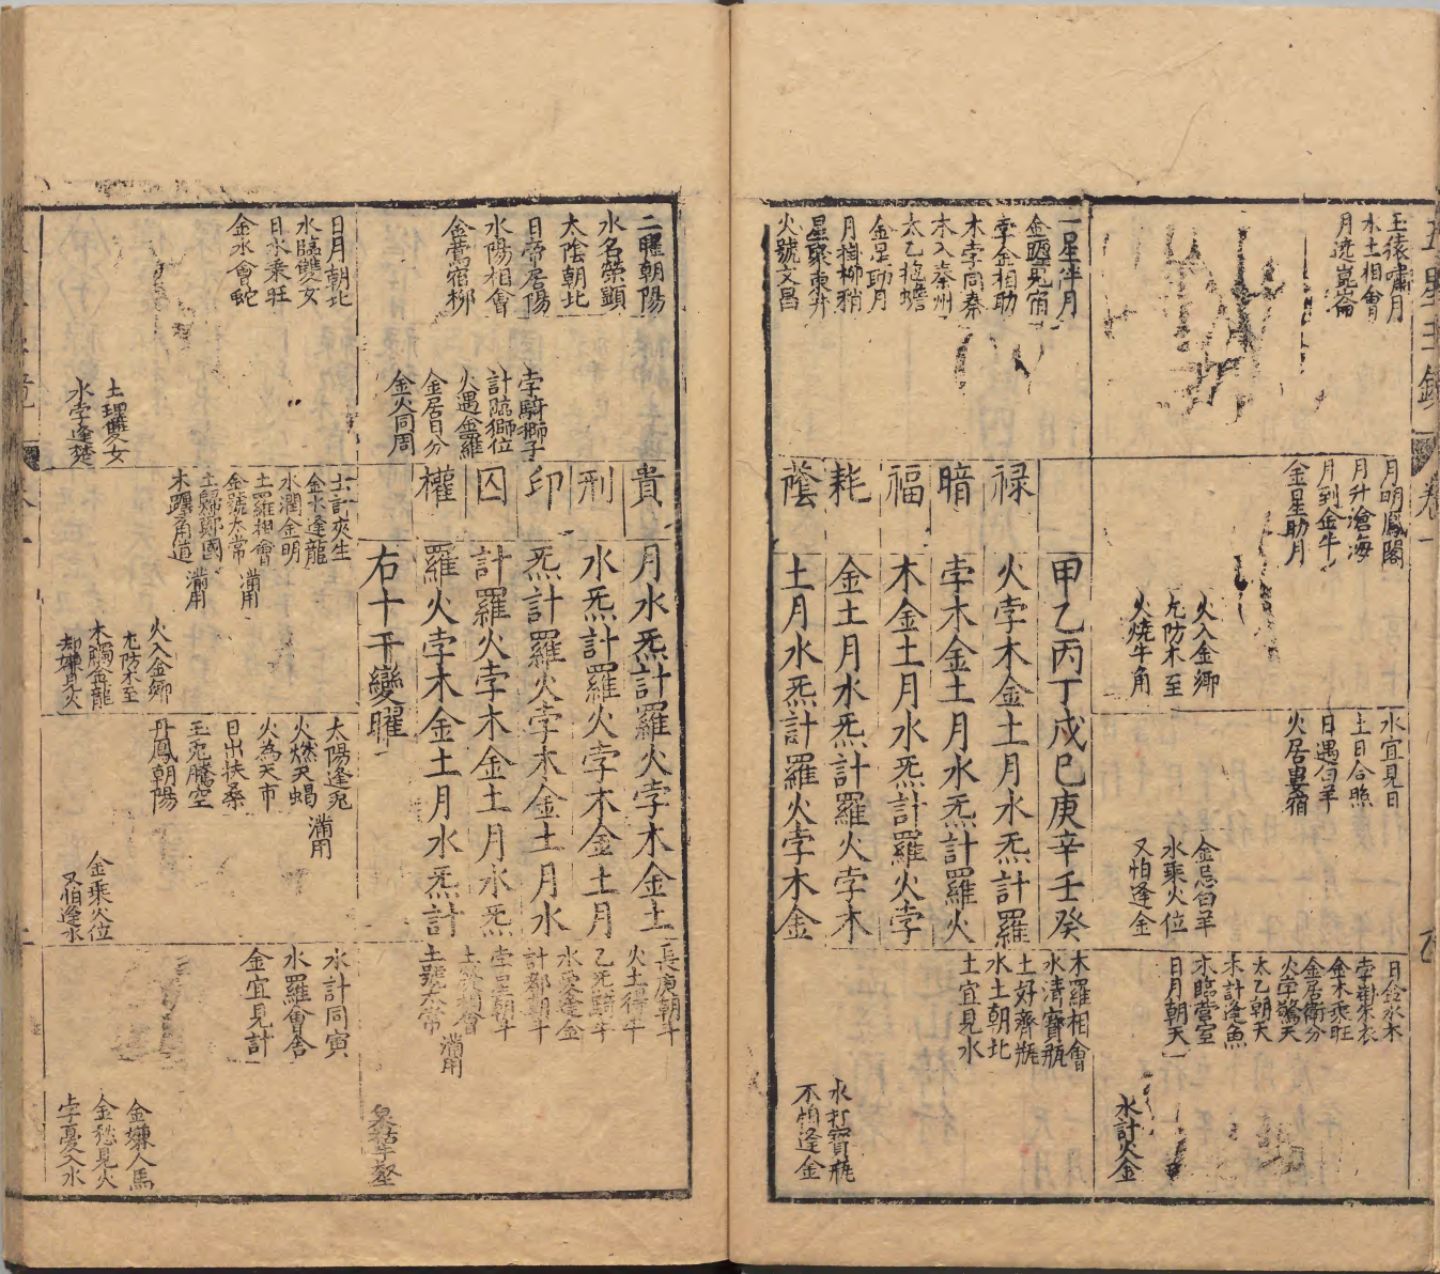 玉猿嘯月
水土相會
月遶崑崙
月明鳳閣
月升滄海
月到金牛
金星助月
火入金鄉
尤防木至
火燒牛角
水宜見日
土日合照
日遇白羊
火居婁宿
金忌白羊
水乘火位
又怕逢金
日鈴水木
孛掛朱衣
金木乘旺
金居衛分
火孛驚天
太乙朝天
木計逢魚
木臨營室
日月朝天
水計火金
一星伴月
金曜見宿
孛金相助
木孛同秦
木入秦州
太乙抱蟾
金星助月
月掛柳稍
星聚東井
火號文昌
甲乙丙丁戊巳庚辛壬癸
禄 火孛木金土月水炁計羅
暗 孛木金土月水炁計羅火
福 木金土月水炁計羅火孛
耗 金土月水炁計羅火孛木
蔭 土月水炁計羅火孛木金
木羅相會
水清寶瓶
土好齊瓶
水土朝北
土宜見水
水打寶瓶
不怕逢金
二曜朝陽
水名榮顯
太陰朝北
日帝居陽
水陽相會
金鶯宿柳
孛騎獅子
計臨獅位
火遇金羅
金居日分
金火同周
貴 月水炁計羅火孛木金土
刑 水炁計羅火孛木金土月
印 炁計羅火孛木金土月水
囚 計羅火孛木金土月水炁
權 羅火孛木金土月水炁計
右十干變曜
長庚朝斗
火土得斗
乙炁騎斗
水愛逢金
計都朝斗
孛星朝斗
相會
土號太常
滿用
日月朝北
水臨雙女
日水乘旺
金水會蛇
土埋雙女
水孛逢楚
土計夾生
金水逢龍
水潤金明
土羅相會
金號太常
滿用
土歸鄭國
滿用
木躔角道
火入金鄉
尤防木至
木觸金龍
却嫌見火
太陽逢兎
火燃天蝎
滿用
火為天市
日出扶桑
玉兎騰空
丹鳳朝陽
金乘火位
又怕逢水
水計同寅
水羅會舍
金宜見計
金嫌人馬
金愁見火
孛憂入水